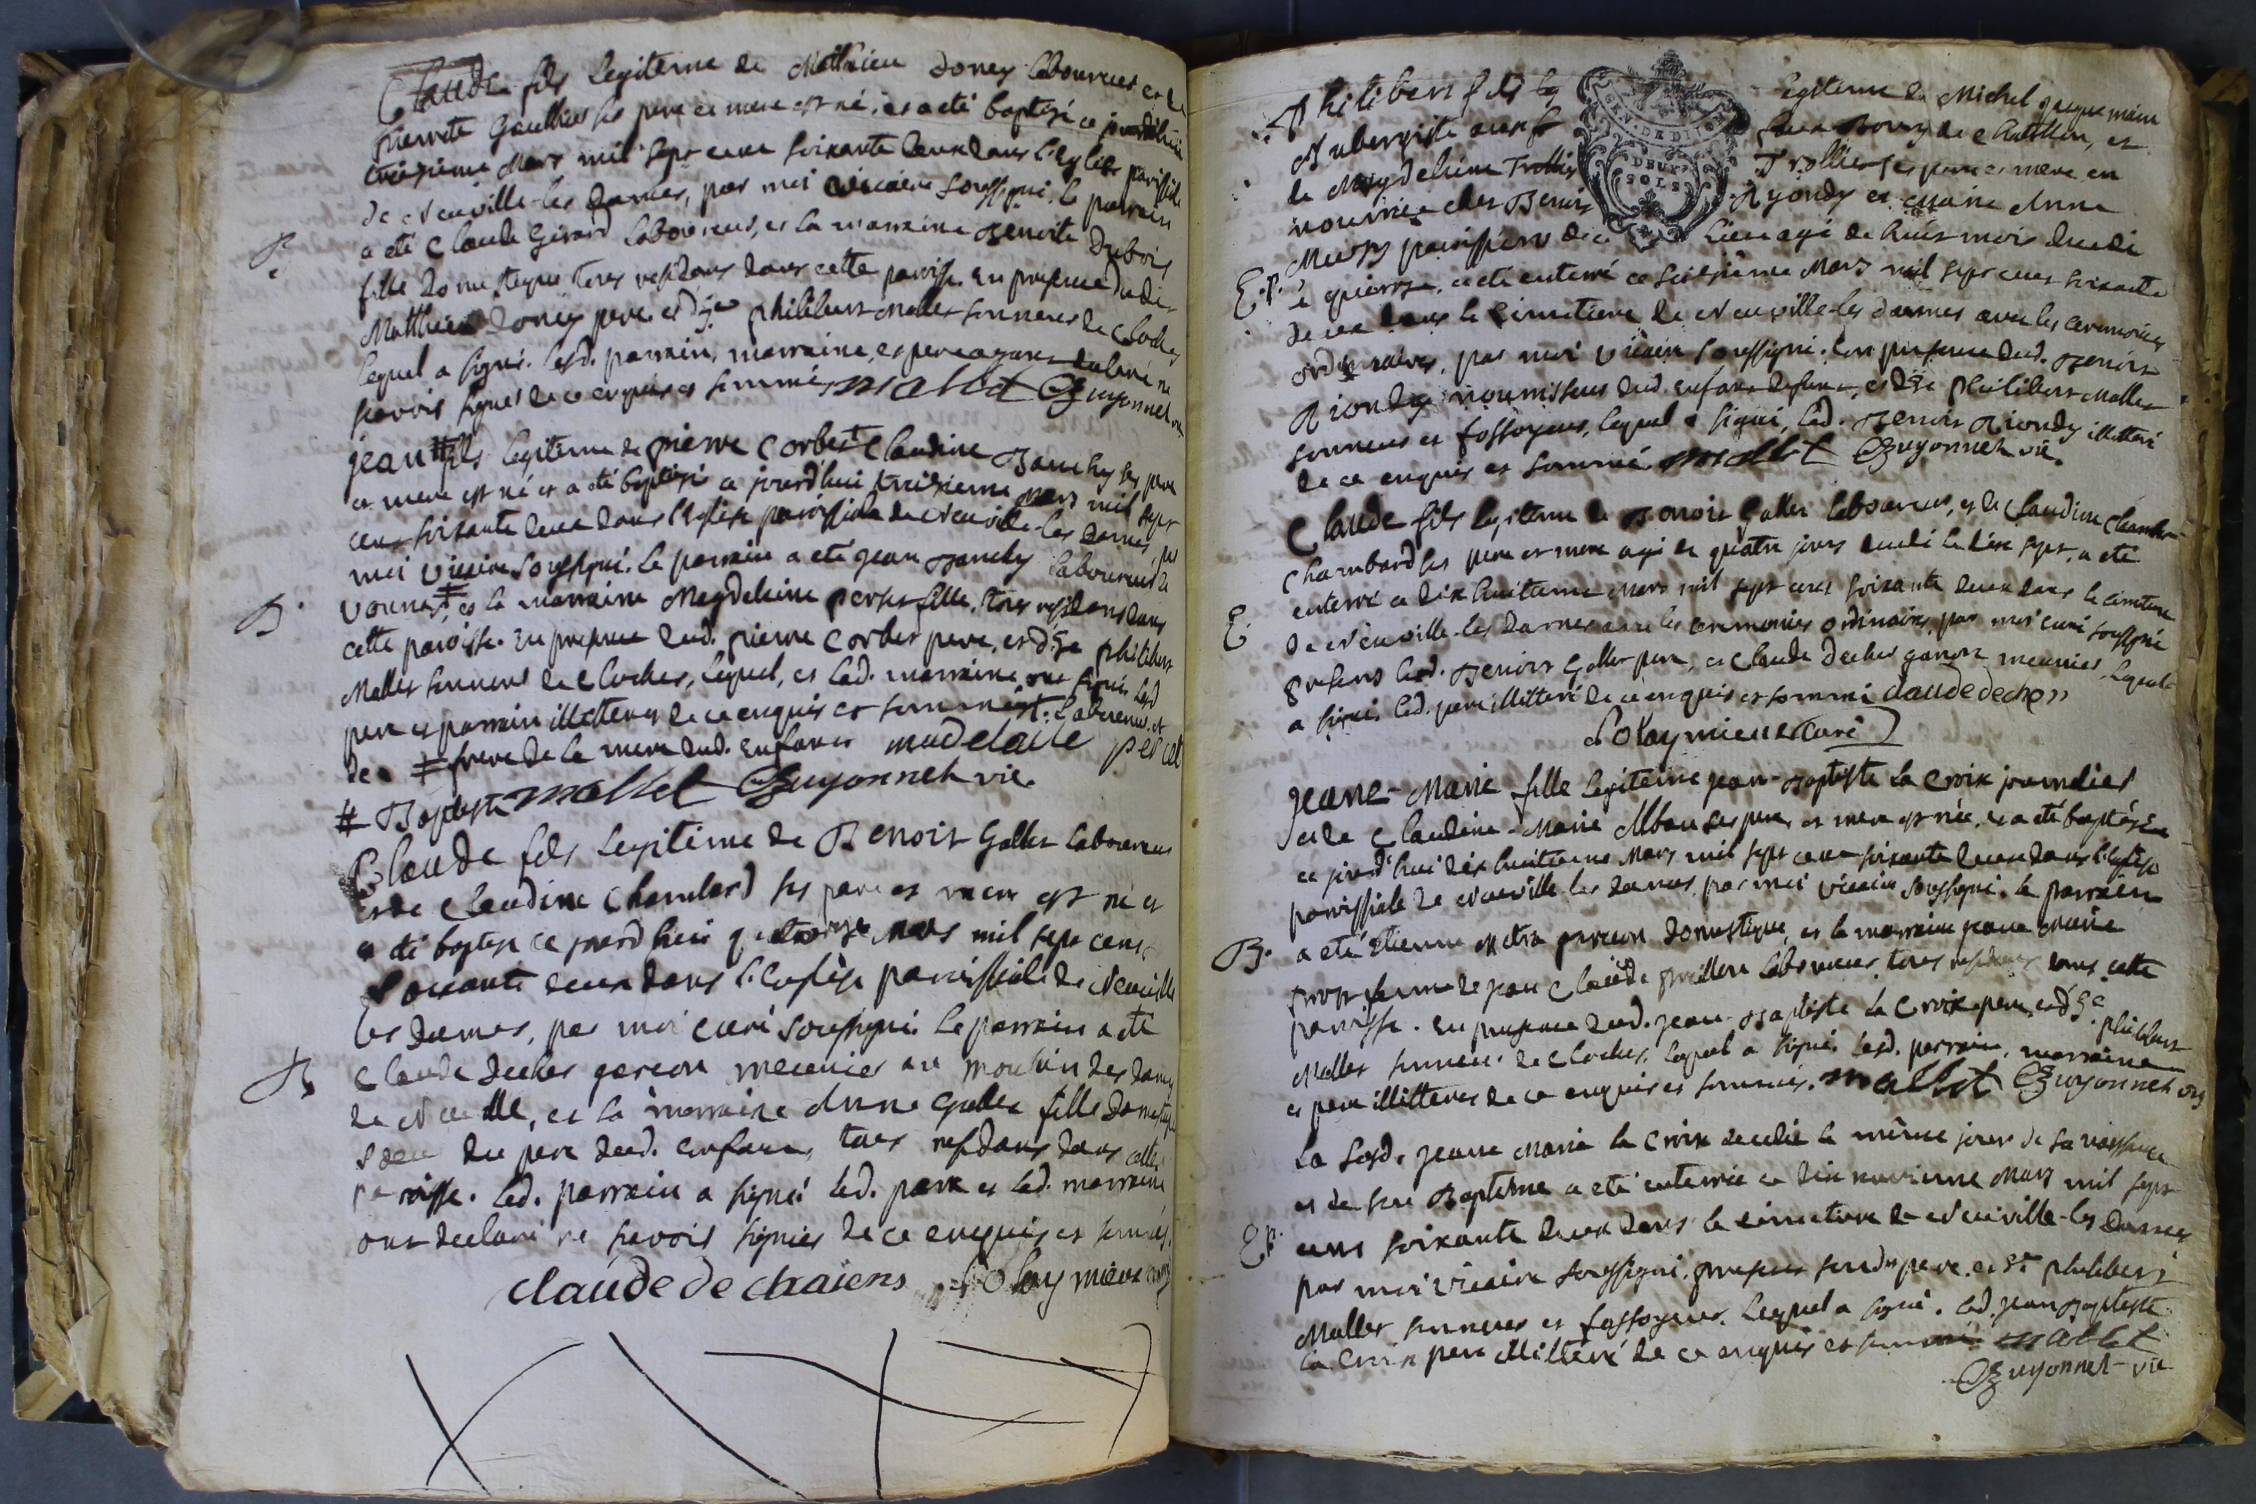 Claude fils legiteme de Matthieu Doney laboureur et de
pierrete Gauthier ses pere et mere est né, et a eté baptisé ce jourd'huy
treizieme Mars mil sept cent soixante deux dans l'eglise paroissiale
de Neuville-les Dames, par moi vicaire soussigné. le parrain
a eté Claude Girard laboureur, et la marraine Benoite Dubois
fille domestique tous residans dans cette paroisse. En presence dudit
Matthieu Doney pere, et d'ge philibert Mallet sonneur de cloches
lequel a signé. lesd. parrain, marraine, et pere ayant declaré ne
savoir signer de ce enquis et sommés, mallet Guyonnet vic.
jean # fils legiteme de pierre Corbet Claudine Banchy ses pere
et mere est né et a eté baptisé ce jourd'hui treizieme Mars mil sept
cent soixante deux dans l'eglise paroissiale de Neuville-les Dames par
moi vicaire soussigné. le parrain a eté jean Banchy laboureur de
Vonnas, et la marraine Magdeleine perset fille, tous residans dans
cette paroisse. En presence dud. pierre Corbet pere, et d'ge philibert
Mallet sonneur de cloches, lequel, et lad. marraine ont signé lesd
pere et parrain illetterés de ce enquis et sommés. laboureur et
frere de la mere dud. enfant madelaile percet
# Baptiste mallet Guyonnet vic.
Claude fils legiteme de Benoit Gallet laboureur
et de Claudine Chambard ses pere et mere est né et
a eté baptisé ce jourd'huir quatorze Mars mil sept cent
soixante deux dans l'eglise paroissiale de Neuville
les dames, par moi curé soussigné le parrain a eté
Claude Deches garcon meunier au moulin des dames
de Neuville, et la marraine Anne Gallet fille domestique
soeur du pere dud. enfant, tous residans dans cette
paroisse. led. parrain a signé led. pere et lad. marraine
ont declaré ne savoir signer de ce enquis et sommés.
claude de chaiens Poloymieux curé
B.
B.
B.
Philibert fils leg legiteme de Michel
Aubergiste au bourg de Chatillon, et
de Magdeleine Trollier Trollier ses pere et mere en
nourrice chez Benoit Ryondy et Marie Anne
Mury paroissiens dece lieu agé de huit mois decedé
E.P.
a eté enterré ce seizieme Mars mil sept cent soixante
deux dans le Cimetiere de Neuville-les dames avec les ceremonies
ordinaires, par moi vicaire soussigné. en presence dud. Benoit
Riondy nourrisseur dud. enfant defunt, et d'ge philibert Mallet
sonneur et fossoyeur, lequel a signé, led. Benoit Riondy illetteré
de ce enquis et sommé mallet Guyonnet vic.
Claude fils legiteme de Benoit Gallet laboureur, et de Claudine
Chambard ses pere et mere agé de quatre jours decedé a eté
enterré ce dix huitieme Mars mil sept cent soixante deux dans le cimetiere
E.
de Neuville-les Dames avec les ceremonies ordinaires, par moi curé soussigné
presens led. Benoit Gallet pere, et Claude Deches garcon meunier, lequel
a signé, led. pere illetteré de ce enquis et sommé claude deches
Poloymieux Curé
jeane-Marie fille legiteme jean-Baptiste la Croix journalier
et de Claudine-Marie Alban ses pere et mere est née, et a eté baptisée
ce jourd'hui dix huitieme Mars mil sept cent soixante deux dans l'eglise
paroissiale de Neuville-les dames, par moi vicaire soussigné. le parrain
B.
a eté Etienne garcon domestique, et la marraine jeane marie
femme de jean Claude laboureur, tous residans dans cette
paroisse. En presence dud. jean-Baptiste la Croix pere, et d'ge philibert
Mallet sonneur de cloches, lequel a signé lesd. parrain, marraine
et pere illetterés de ce enquis et sommés. mallet Guyonnet vic
La susd. jeane Marie la Croix decedée le même jour de sa naissance
et de son Baptême a eté enterrée ce dix neuvieme Mars mil sept
E.P.
cent soixante deux dans le cimetiere de Neuville-les Dames
par moi vicaire soussigné. presens sond. pere, et d'ge philibert
Mallet sonneur et fossoyeur, lequel a signé. led. jean Baptiste
la Croix pere illetteré de ce enquis et sommé mallet
Guyonnet vic
GEN. DE DIJON
DEUX
SOLS